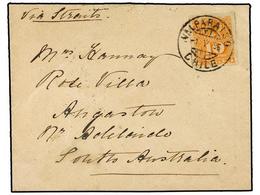 Via Straits.
VALPARAISO
CHILE
Mrs Hannay
Rose Villa
Angaston
Nr Adelaide
South Australia